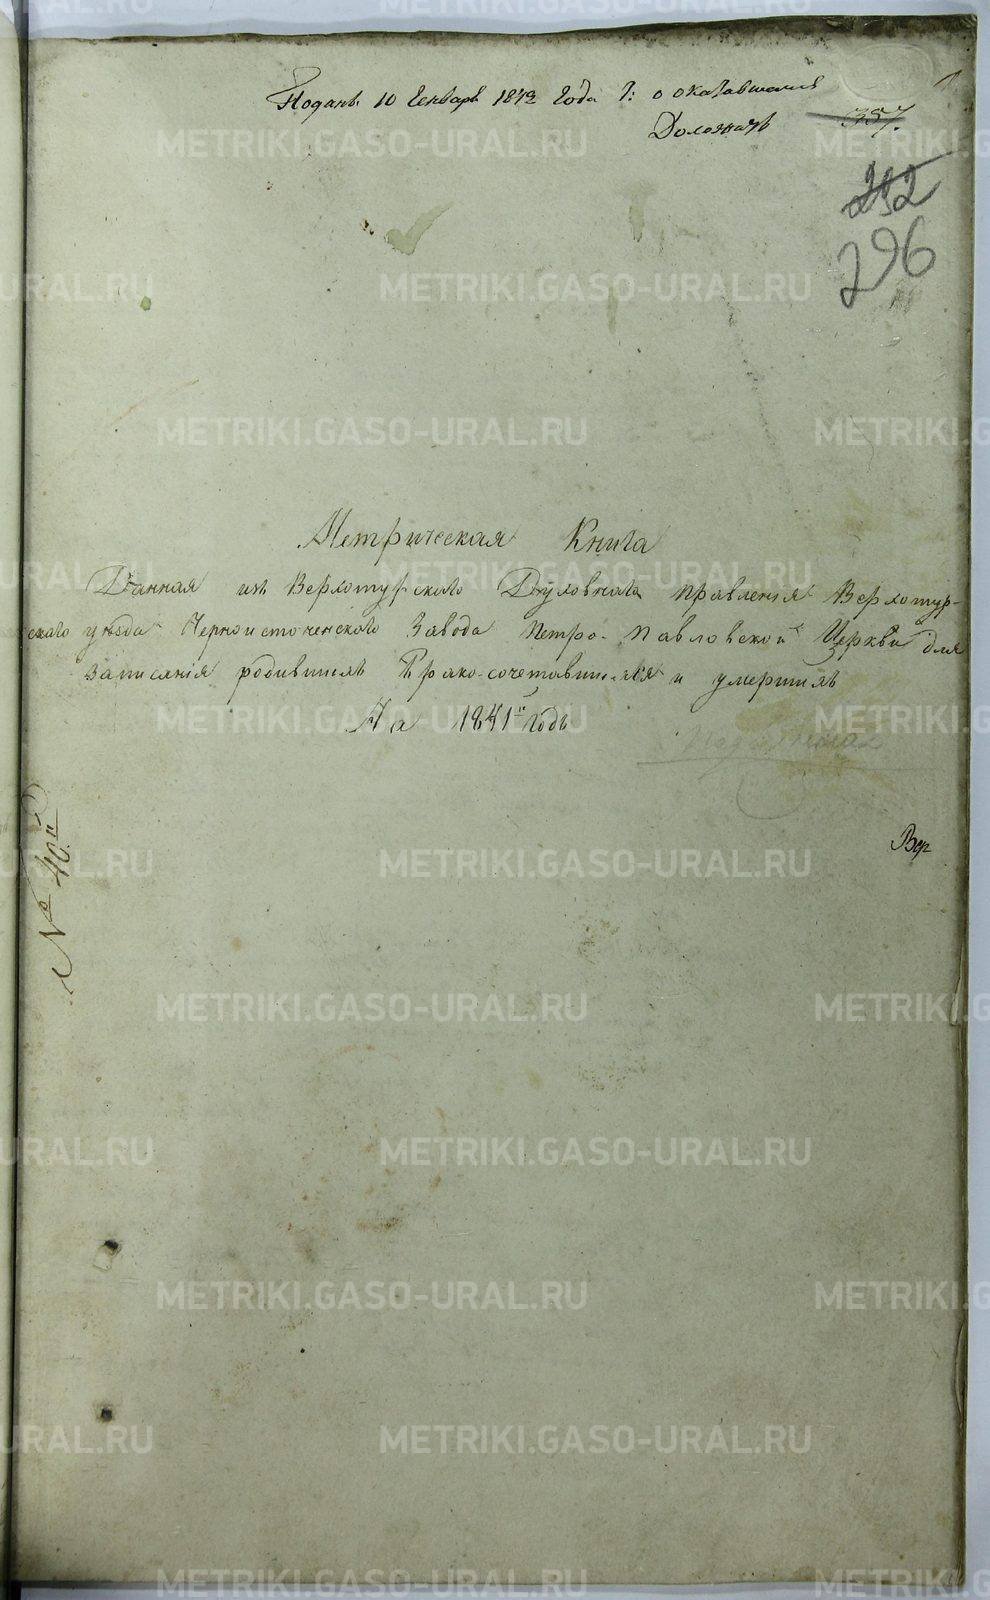 Поданъ 10 Генваря 1842 Года о оказавшемся
Доложить
357.
232
296
Метрическая Книга
Данная изъ Верхотурскаго Духовнаго Правленія Верхотур-
скаго уѣзда Черноисточенскаго Завода Петро-Павловской Церкви для
записанія родившихъ бракосочетавшихся и умершихъ
На 1841й Годъ
№ 40й
Вер
METRIKI.GASO-URAL.RU